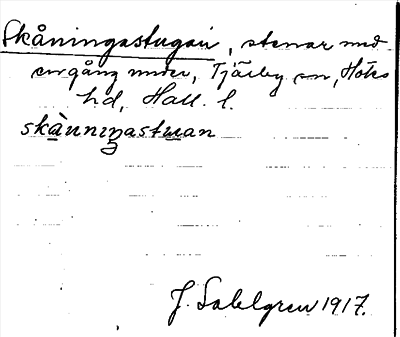 Skåningastugan, stenar med
urgång under, Tjärby sn, Höks
hd, Hall. l.
skànningastuan
J. Sahlgren 1917.